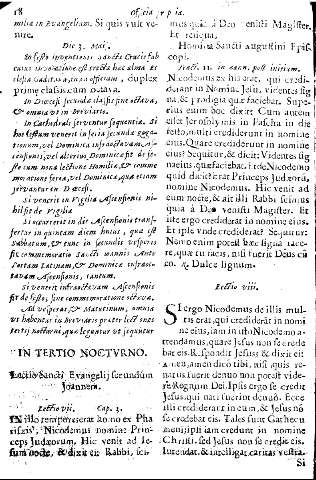 18
Officia propria.
milia in Evangelium. Si quis vult ve-
nire.
Die 3. Maij.
In festo inventionis Sanctæ Crucis fab
duplex
primæ classis cum octava.
In Diœcesi secundæ classis sine octava,
& omnia ut in breviario.
In Cathedrali serventur sequentia. Si
hoc festum venerit in feria secunda Roga-
tionum, vel Dominica infra octavam As-
censionis, vel alterius, Dominicæ fit de fe-
sto cum nona lectione Homiliæ, & comme
moratione feriæ, vel Dominicæ, quæ etiam
servantur in Diœcesi.
Si venerit in Vigilia Ascensionis ni-
hil fit de Vigilia
Si occurrerit in die Ascensionis trans-
fertur in quintam diem huius, quæ est
Sabbatum, & tunc in secundis vesperis
fit commemoratio Sancti Ioannis Ante
Portam Latinam, & Dominicæ infraoc-
tavam Ascensionis, tantum.
Si venerit infraoctavam Ascensionis
fit de festo, sine commemoratione octavæ,
Ad vesperas, & Matutinum, omnia
ut habentur in breviario præter lectiones
tertij nocturni, quæ leguntur ut sequuntur
IN TERTIO NOCTVRNO.
Lectio Sancti Evangelij secundum
Joannem.
Lectio vij. Cap. 3.
IN illo tempore erat homo ex Pha
risæis, Nicodemus nomine Prin-
ceps Judæorum, Hic venit ad Ie-
sum nocte, & dixit ei: Rabbi, sci-
mus quia à Deo venisti Magister.
Et reliqua.
Homilia Sancti Augustini Epis-
copi.
Tract. 11. in Joann. post initium.
Nicodemus ex his erat, qui credi-
derant in Nomine Jesu, videntes sig
na, & prodigia quæ faciebat. Supe-
rius enim hoc dixit: Cum autem
esset Jerosolymis in Pascha in die
festo, multi crediderunt in nomine
eius. Quare crediderunt in nomine
eius? Sequitur, & dicit: Videntes sig
na eius, quæ faciebat. Et de Nicodemo
quid dicit? erat Princeps Judæorum,
nomine Nicodemus. Hic venit ad
eum nocte, & ait illi Rabbi scimus
quia à Deo venisti Magister. Et
iste ergo crediderat in nomine eius.
Et ipse unde crediderat? Sequitur:
Nemo enim potest hæc signa face-
re, quæ tu facis, nisi fuerit Deus cū
eo. ℟. Dulce lignum.
Lectio viij.
SI ergo Nicodemus de illis mul-
tis erat, qui crediderant in nomi
ne eius, iam in isto Nicodemo a-
ttendamus, quare Jesus non se crede
bat eis. Respondit Jesus: & dixit ei:
Amen, amen dico tibi, nisi quis re-
natus fuerit denuo non potest vide-
re Regnum Dei. Ipsis ergo se credit
Jesus, qui nati fuerint denuò. Ecce
illi crediderant in eum, & Jesus nō
se credebat eis. Tales sunt Cathecu
meni, ipsi iam credunt in nomine
Christi, sed Jesus non se credit eis.
Intendat, & intelligat caritas vestra.
Si